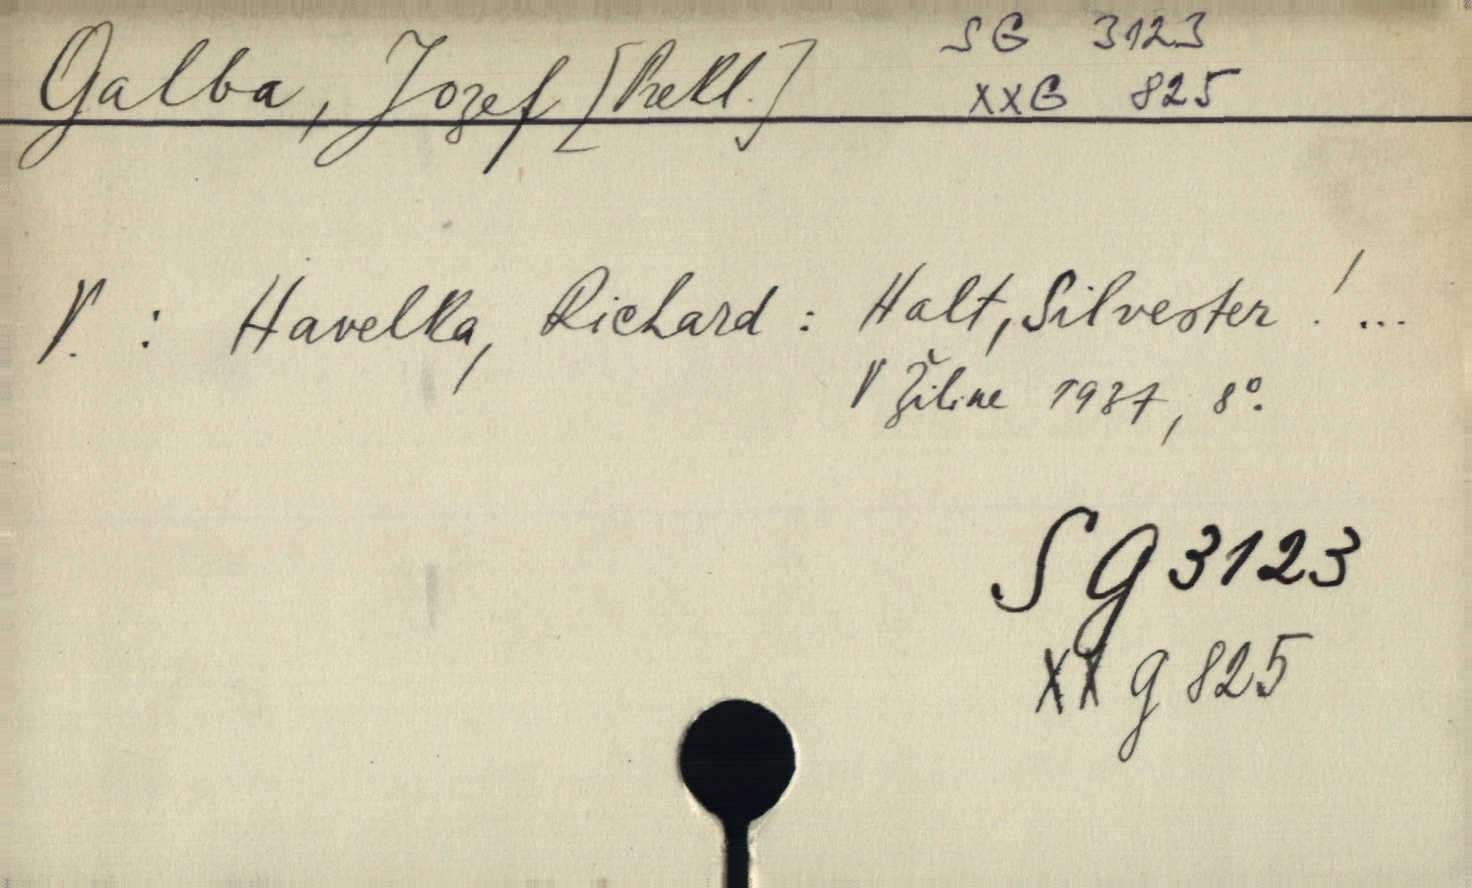 Galba, Jozef [Prekl.]
SG 3123
XXG 825
V. : Havelka, Richard : Halt, Silvester ! ...
V Žiline 1937, 8°.
SG 3123
XX G 825